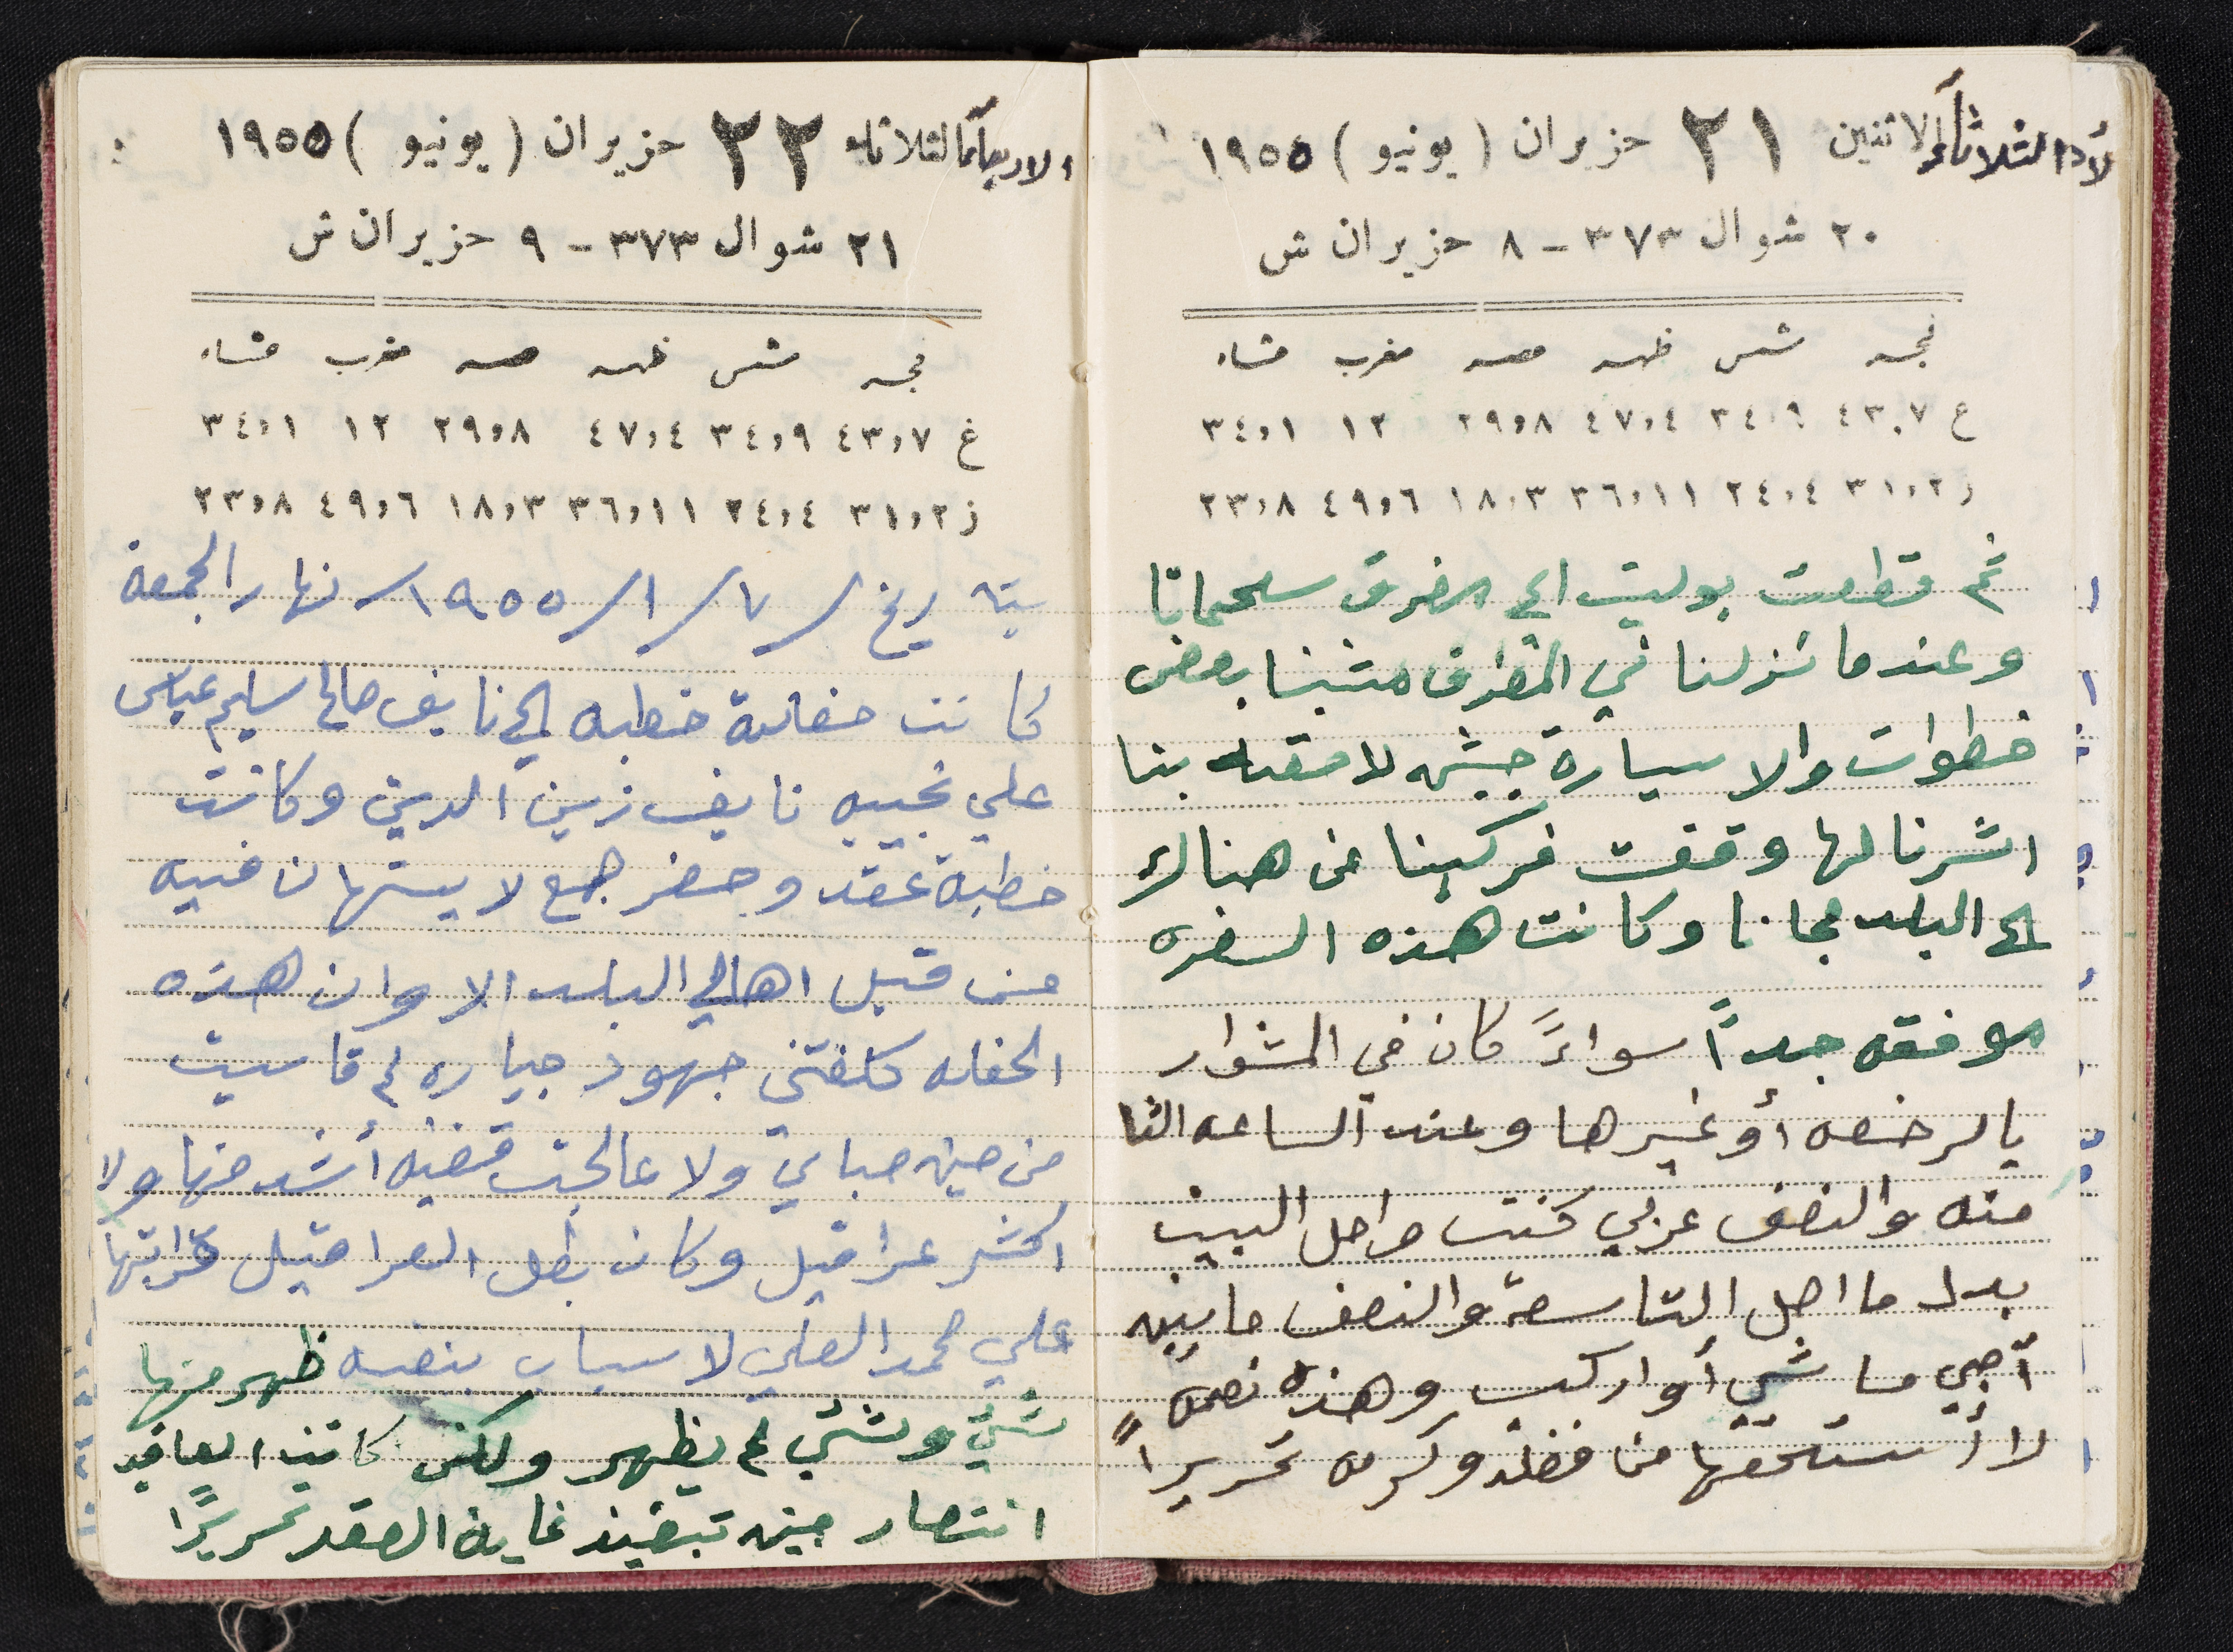 الثلاثاء الاثنين ٢١ حزيران (يونيو) ١٩٥٥
٢٠ شوال ٣٧٣ - ٨ حزيران ش
فجر شمس ظهر عصر مغرب عشاء
غ ٤٣،٧ ٣٤،٩ ٤٧،٤ ٢٩،٨ ١٢ ٣٤،١
ز ٣١،٢ ٢٤،٤ ٣٦،١١ ١٨،٣ ٤٩،٦ ٢٣،٨
ثم قطعت بوليت الى المفرق سلحماتا
وعندما نزلنا في المفرق مشينا بعض
خطوات والا سيارة جيش لاحقه بنا
اشرنا لها وقفت فركبنا من هناك
الى البلد مجانا وكانت هذه السفره
موفقه جداً سواءً كان في المشوار
بالرخصه أو غيرها وعند الساعه الثا
منه والنصف عربي كنت واصل البيت
بدل ما اصل التاسعة والنصف ما بين
أجي ماشي أو اركب وهذه نعمه
لا أستحقها من فضله وكرمه تحريراً
الاربعاء الثلاثاء ٢٢ حزيران (يونيو) ١٩٥٥
٢١ شوال ٣٧٣ - ٩ حزيران ش
فجر شمس ظهر عصر مغرب عشاء
غ ٤٣،٧ ٣٤،٩ ٤٧،٤ ٢٩،٨ ١٢ ٣٤،١
ز ٣١،٢ ٢٤،٤ ٣٦،١١ ١٨،٣ ٤٩،٦ ٢٣،٨
بتاريخ ٧/١/١٩٥٥ نهار الجمعة
كانت حفلة خطبه الى نايف صالح سليم عباس
على نجيبه نايف زين الدين وكانت
خطبة عقد وحضر جمع لا يستهان فيه
من قبل اهالي البلد الا وان هذه
الحفله كلفتني جهود جباره لم قاسيت
من حين صباي ولا عالجت قضيه أشد منها ولا
اكثر عراقيل وكان بطل العراقيل قرابتها
علي محمد العلي لاسباب بنفسه ظهر منها
شيء وشيء لم يظهر ولكن كانت العاقبه
انتصار حين تبفيذ غاية العقد تحريرًا